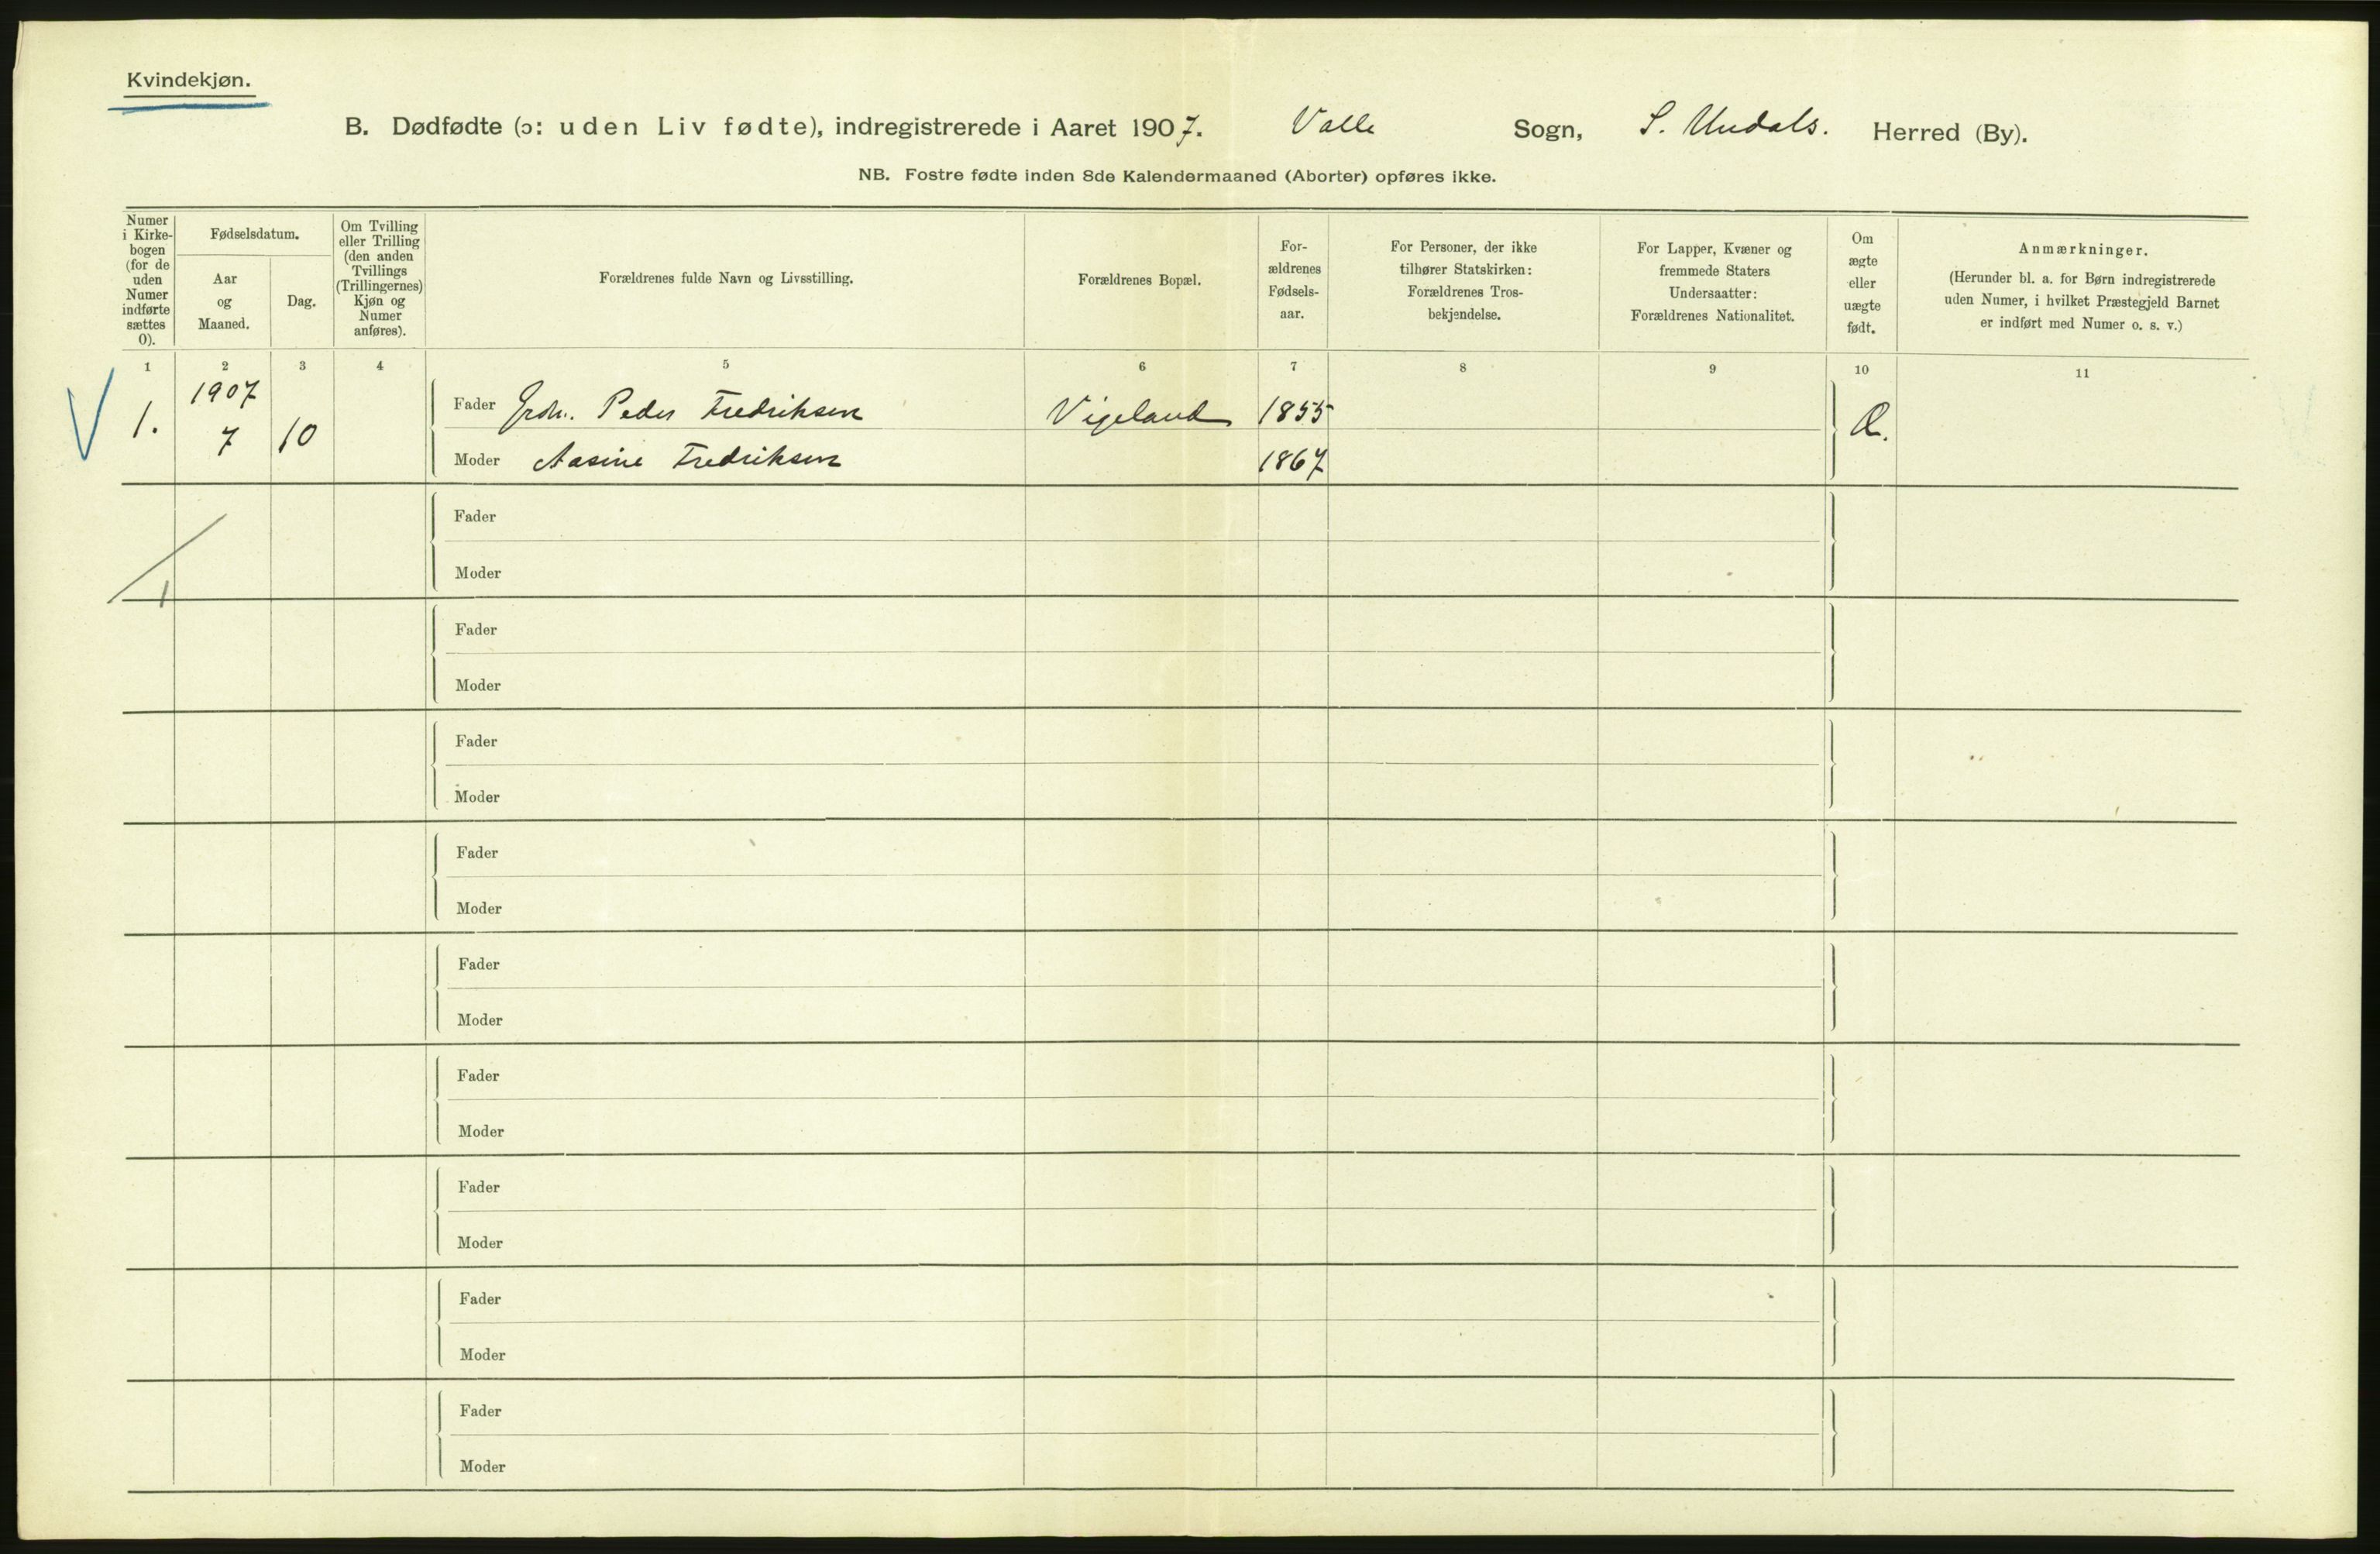 Kvindekjøn.
B. Dødfødte (ɔ: uden Liv fødte), indregistrerede i Aaret 1907. Valle Sogn, S. Undals. Herred (By).
NB. Fostre fødte inden 8de Kalendermaaned (Aborter) opføres ikke.
Numer
i Kirke-
bogen
(for de
uden
Numer
indførte
sættes
0).
Fødselsdatum.
Aar
og
Maaned.
Dag.
Om Tvilling
eller Trilling
(den anden
Tvillings
(Trillingernes)
Kjøn og
Numer
anføres).
Forældrenes fulde Navn og Livsstilling.
Forældrenes Bopæl.
For-
ældrenes
Fødsels-
aar.
For Personer, der ikke
tilhører Statskirken:
Forældrenes Tros-
bekjendelse.
For Lapper, Kvæner og
fremmede Staters
Undersaatter:
Forældrenes Nationalitet.
Om
ægte
eller
uægte
født.
Anmærkninger.
(Herunder bl. a. for Børn indregistrerede
uden Numer, i hvilket Præstegjeld Barnet
er indført med Numer o. s. v.)
1 2 3 4 5 6 7 8 9 10 11
1907
V 1. 7 10
Fader Peder Fredriksen Vigeland 1855 Æ.
Moder Aasine Fredriksen 1867
Fader
Moder
1
Fader
Moder
Fader
Moder
Fader
Moder
Fader
Moder
Fader
Moder
Fader
Moder
Fader
Moder
Fader
Moder